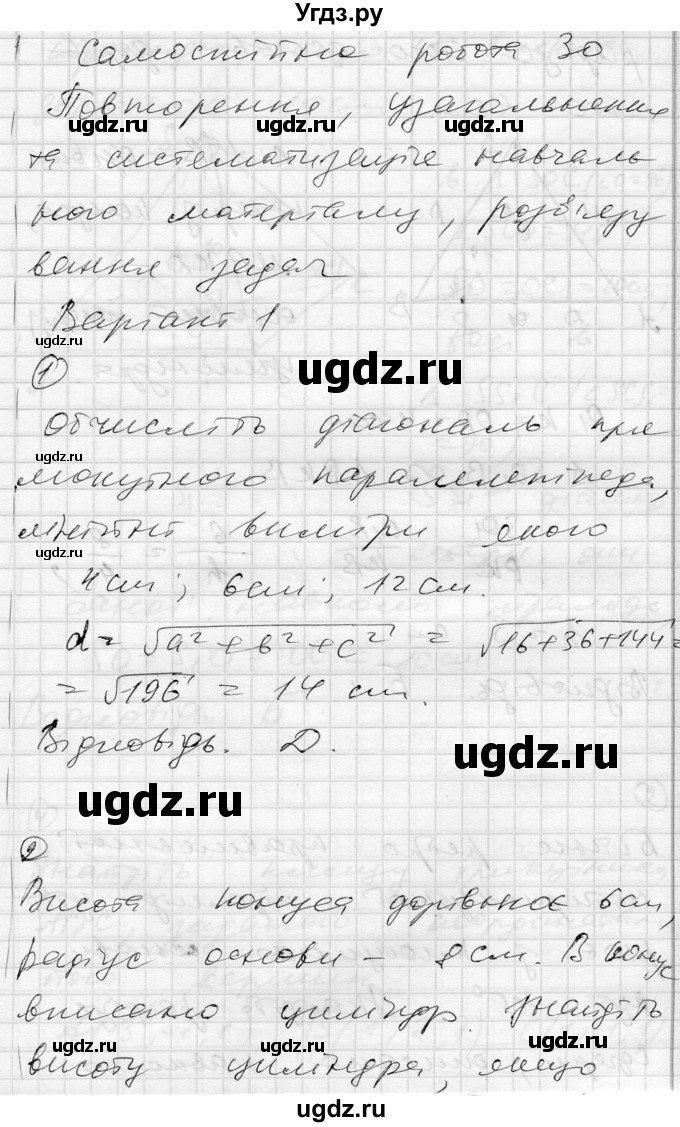 Угдз.ру
Самостійна робота 30
Повторення, узагальнення
ugdz.ru ugdz.ru ugdz.ru
та систематизація навчаль
ного матеріалу, розв'язу
вання задач
Варіант 1
ugdz.ru
ugdz.ru
1
Обчисліть діагональ пря
ugdz.ru
мокутного паралелепіпеда,
лінійні виміри якого
ugdz.ru
4 см; 6 см; 12 см.
d = √a² + b² + c² = √16+36+144 =
= √196 = 14 см.
Відповідь. Д.
ugdz.ru
ugdz.ru
2
Висота конуса дорівнює 6 см,
радіус основи – 8 см. В конус
вписано циліндр. Знайдіть
ugdz.ru ugdz.ru ugdz.ru
висоту циліндра, якщо
ugdz.ru